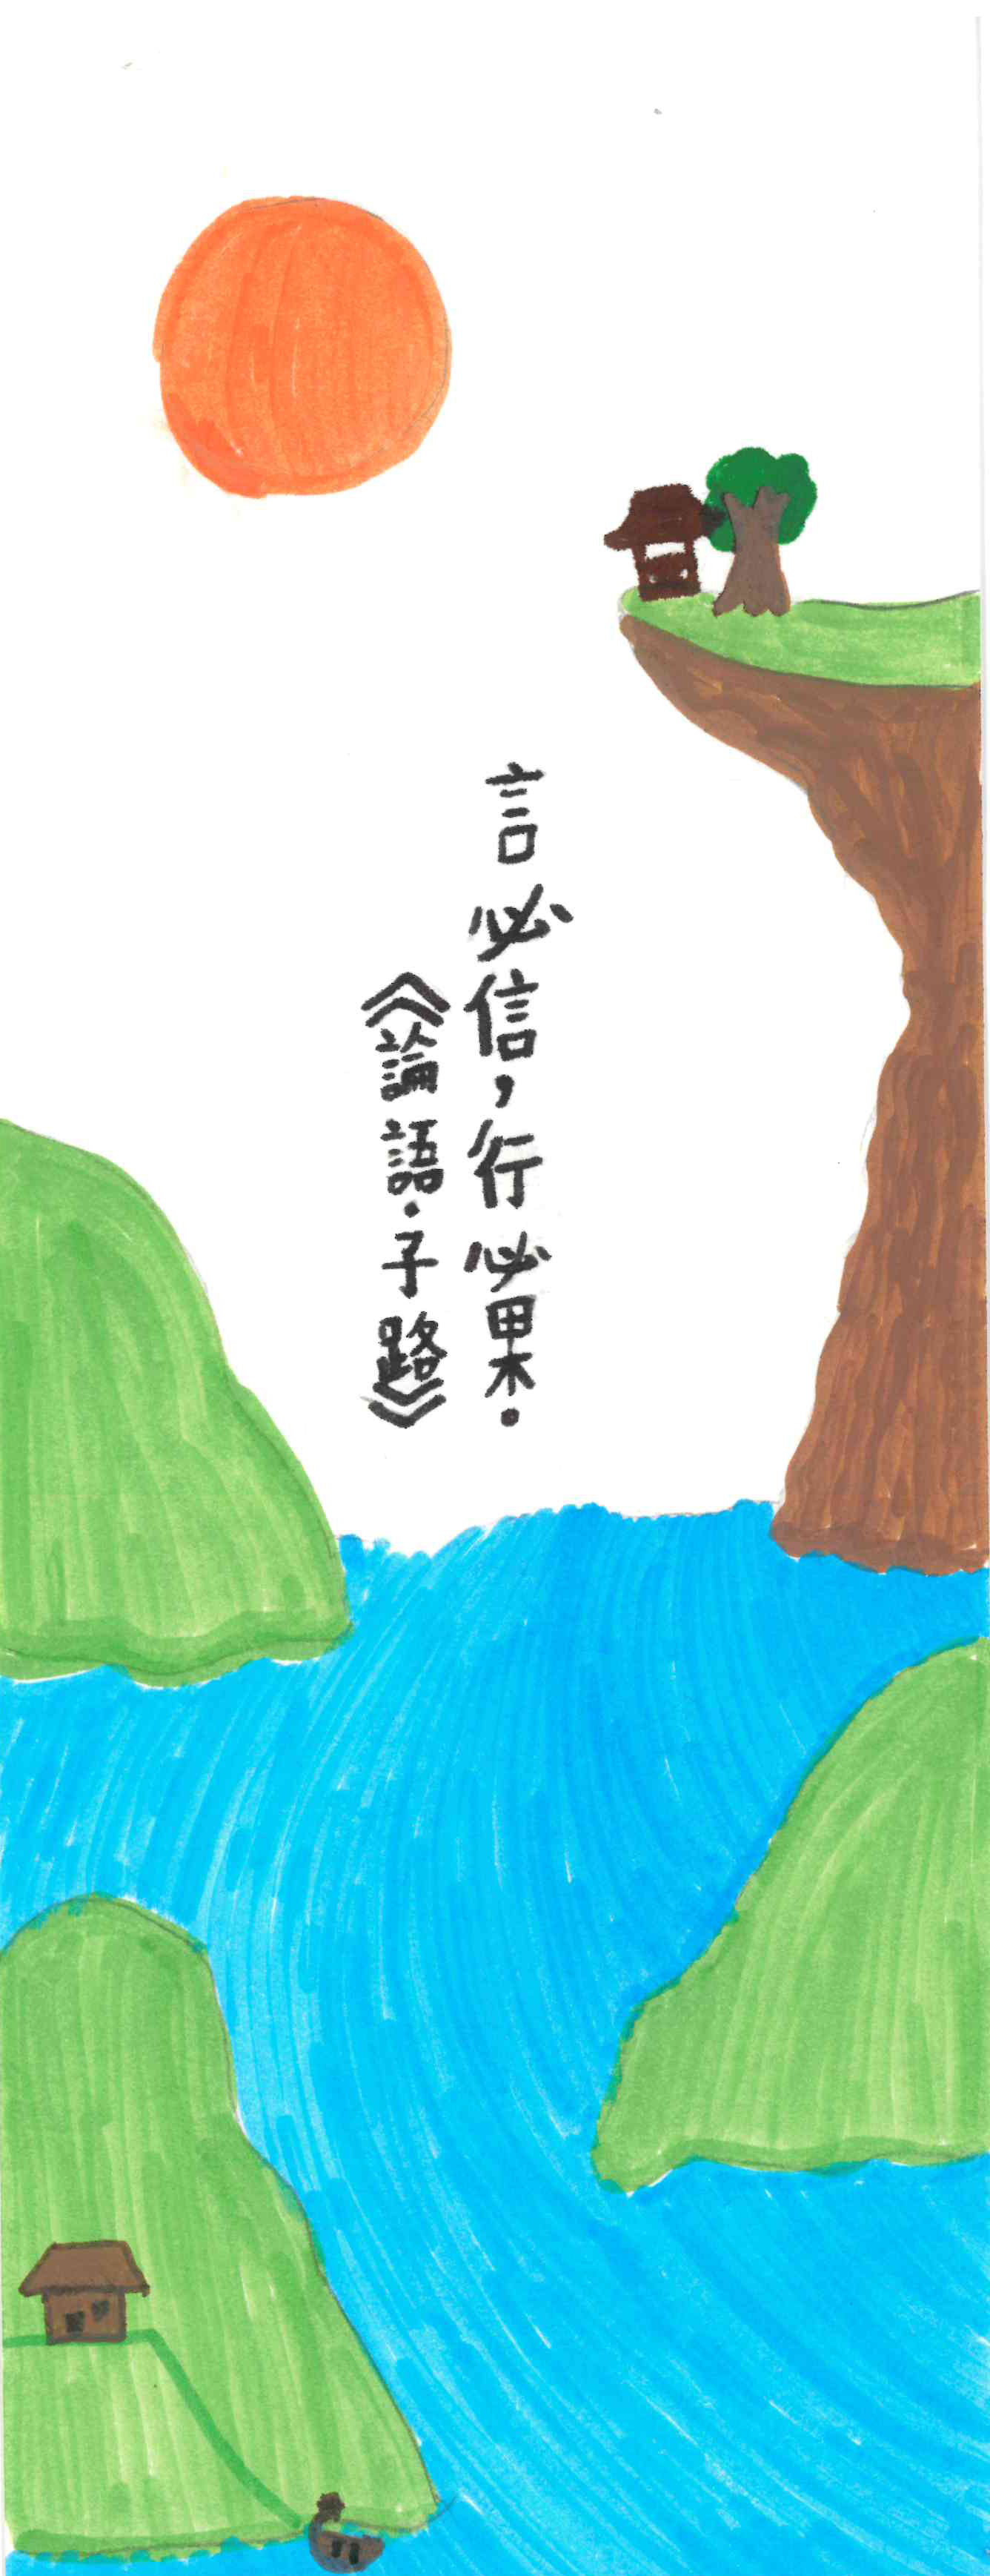 言必信，行必果.
《論語·子路》